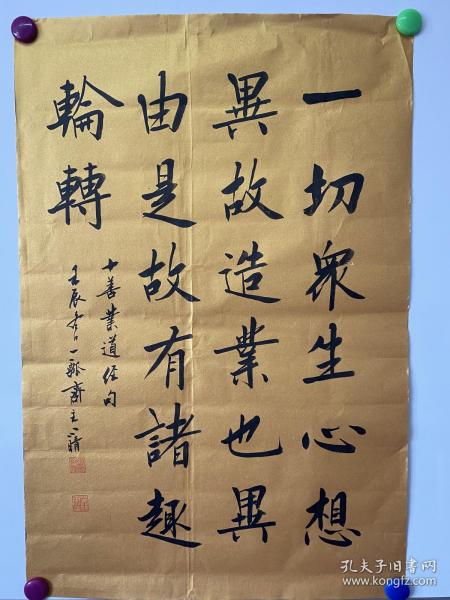 一切衆生心想
異故造業也異
由是故有諸趣
輪轉
十善業道经句
壬辰 一 齋
孔夫子旧书网
www.kongfz.com